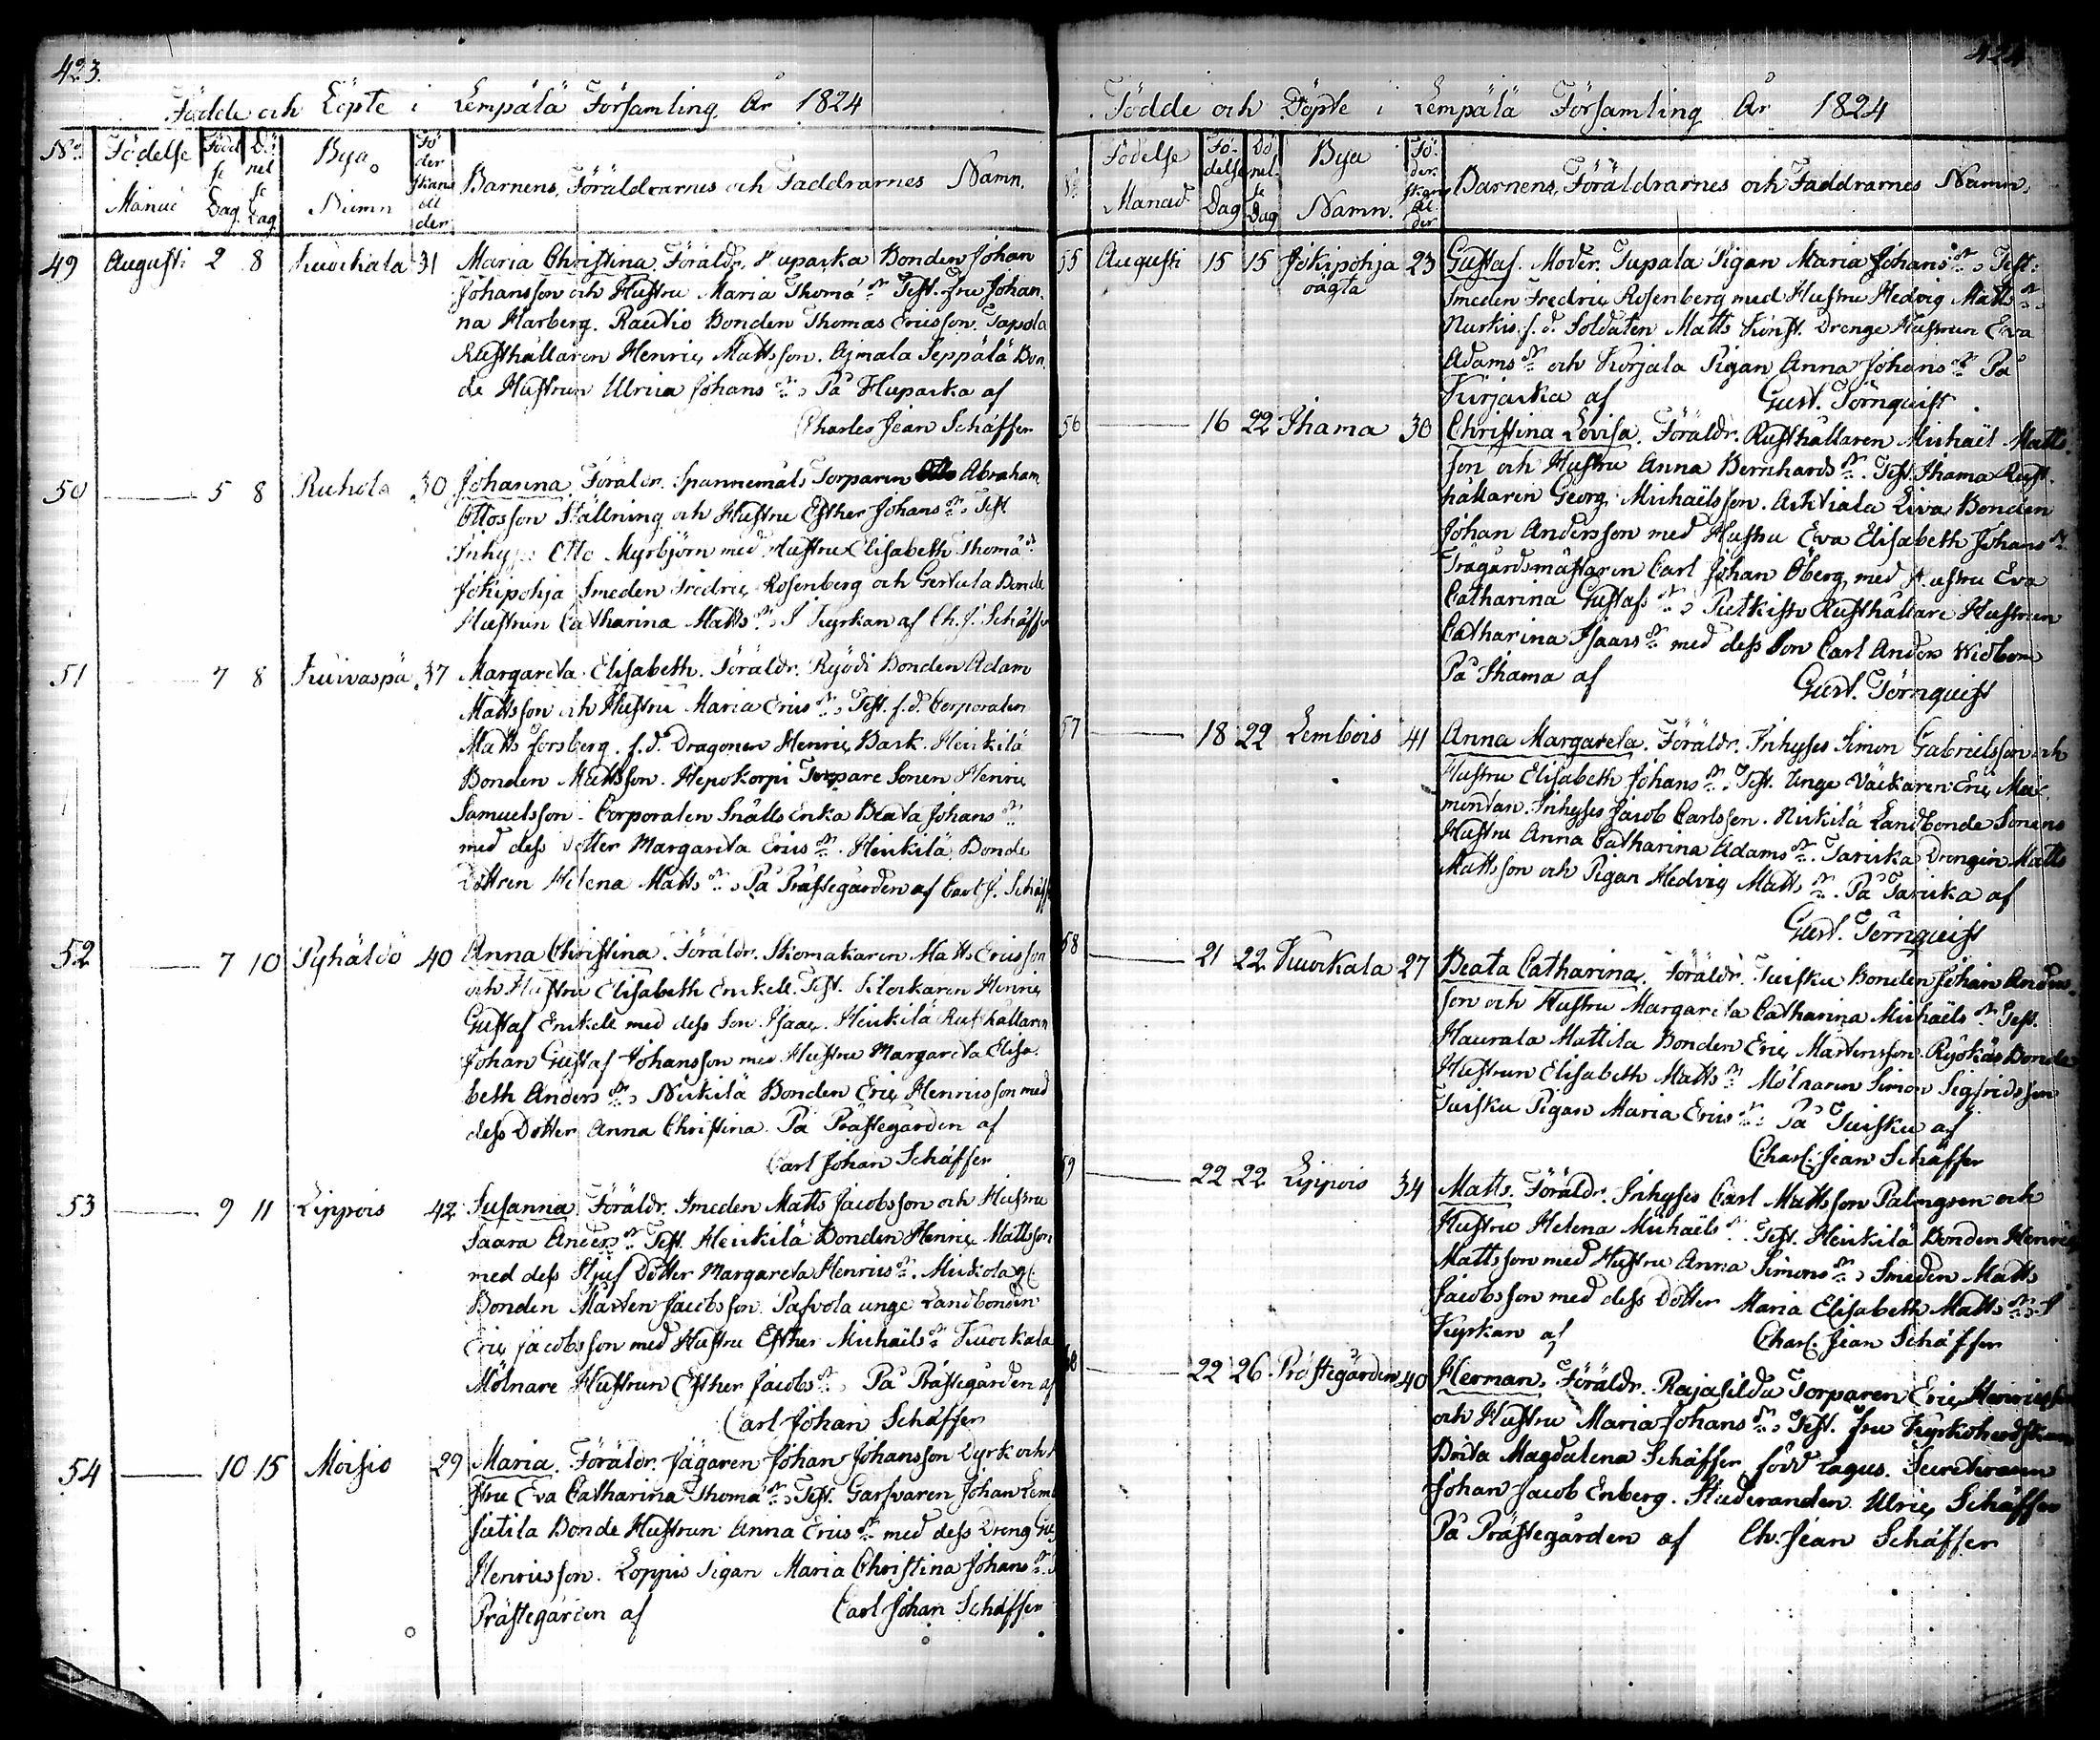 423.
Födde och Döpte i Lempälä Församling År 1824
No Födelse Manad Födelse Dag Döpelse Dag Bya Namn Föderskans ålder Barnens, Föräldrarnes och Faddrarnes Namn.
49 Augusti 2 8 Kuockala 31 Maria Christina. Föräldr. Huparka Bonden Johan
Johansson och Hustru Maria Thomæ dr. Test. fru Johan-
na Harberg. Rautio Bonden Thomas Ericsson. Tapola
Rusthållaren Henric Mattsson. Ajmala Seppälä Bon-
de Hustrun Ulrica Johans dr. På Huparka af
Charles Jean Schäffer
50 5 8 Ruhola 30 Johanna. Föräldr. Spannemåls Torparen Abraham
Ottosson Ställning och Hustru Esther Johans dr. Test.
Inhyses Otto Myrbjörn med Hustru Elisabeth Thomæ dr.
Jokipohja Smeden Fredric Rosenberg och Gertula Bonde
Hustrun Catharina Matts dr. I Kyrkan af Ch. J. Schäffer
51 7 8 Kuivaspä 37 Margareta Elisabeth. Föräldr. Ryödi Bonden Adam
Mattsson och Hustru Maria Erics dr. Test. f.d. Corporalen
Matts Forsberg. f.d. Dragonen Henric Bark. Heickilä
Bonden Mattsson. Hepokorpi Torpare Sonen Henric
Samuelsson. Corporalen Snälls Enka Beata Johans dr.
med dess dotter Margareta Erics dr. Heickilä Bonde
Dottren Helena Matts dr. På Prästegården af Carl J. Schäff
52 7 10 Pyhäldö 40 Anna Christina. Föräldr. Skomakaren Matts Ericsson
och Hustru Elisabeth Enckell. Test. Klockaren Henric
Gustaf Enckell med dess Son Isaac. Heickilä Rusthållaren
Johan Gustaf Johansson med Hustru Margareta Elisa-
beth Anders dr. Nickilä Bonden Eric Henricsson med
dess Dotter Anna Christina. På Prästegården af
Carl Johan Schäffer
53 9 11 Lippois 42 Susanna. Föräldr. Smeden Matts Jacobsson och Hustru
Saara Anders dr. Test. Heickilä Bonden Henric Mattsson
med dess Stjuf Dotter Margareta Henrics dr. Mickola
Bonden Mårten Jacobsson. Pasvola unge Landbonden
Eric Jacobsson med Hustru Esther Michaëls dr. Kuockala
Mölnare Hustrun Esther Jacobs dr. På Prästegården af
Carl Johan Schäffer
54 10 15 Moisio 29 Maria. Föräldr. Jägaren Johan Johansson Dyrk och
stru Eva Catharina Thomæ dr. Test. Garfvaren Johan Lem
Sutila Bonde Hustrun Anna Erics dr. med dess Dreng
Henricsson. Loppis Pigan Maria Christina Johans dr.
Prästegården af Carl Johan Schäffer
424
Födde och Döpte i Lempälä Församling År 1824
No Födelse Manad Födelse Dag Döpelse Dag Bya Namn. Föderskans ålder Barnens, Föräldrarnes och Faddrarnes Namn.
55 Augusti 15 15 Jokipohja oägta 23 Gustaf. Moder. Tupala Pigan Maria Johans dr. Test:
Smeden Fredric Rosenberg med Hustru Hedvig Matts dr.
Nurkis f.d. Soldaten Matts Konst. Drenge Hustrun Eva
Adams dr. och Korjala Pigan Anna Johans dr. På
Kirjaska af Gust. Törnquist.
56 16 22 Ihama 30 Christina Lovisa. Föräldr. Rusthållaren Michaël Matt-
son och Hustru Anna Bernhards dr. Test. Ihama Rust-
hållaren Georg Michaëlsson. Ahtiala Liva Bonden
Johan Andersson med Hustru Eva Elisabeth Johans dr.
Trägårdsmästaren Carl Johan Öberg, med Hustru Eva
Catharina Gustafs dr. Putkisto Rusthållare Hustrun
Catharina Isaacs dr. med dess Son Carl Anders Widbom
På Ihama af Gust. Törnquist
57 18 22 Lembois 41 Anna Margareta. Föräldr. Inhyses Simon Gabrielsson och
Hustru Elisabeth Johans dr. Test. Unge Väckaren Eric Mai-
mondan. Inhyses Jacob Carlsson. Nickilä Landbonde Sonens
Hustru Anna Catharina Adams dr. Taricka Drengen Matts
Mattsson och Pigan Hedvig Matts dr. På Taricka af
Gust. Törnquist
58 21 22 Kuockala 27 Beata Catharina. Föräldr. Tuisku Bonden Johan Anders-
son och Hustru Margareta Catharina Michaëls dr. Test.
Haurala Mattila Bonden Eric Mårtensson. Ryökäs Bonde
Hustrun Elisabeth Matts dr. Mölnaren Simon Sigfridsson
Tuisku Pigan Maria Erics dr. På Tuisku af
Charl. Jean Schäffer
59 22 22 Lippois 34 Matts. Föräldr. Inhyses Carl Mattsson Palmgren och
Hustru Helena Michaëls dr. Test. Heickilä Bonden Henric
Mattsson med Hustru Anna Simons dr. Smeden Matts
Jacobsson med dess Dotter Maria Elisabeth Matts dr. I
Kyrkan af Charl. Jean Schäffer
60 22 26 Prästegården 40 Herman. Föräldr. Rajasilda Torparen Eric Henricsson
och Hustru Maria Johans dr. Test. fru Kyrkoherdskan
Brita Magdalena Schäffer född Lagus. Secreteraren
Johan Jacob Enberg. Studeranden Ulric Schäffer
På Prästegården af Ch. Jean Schäffer